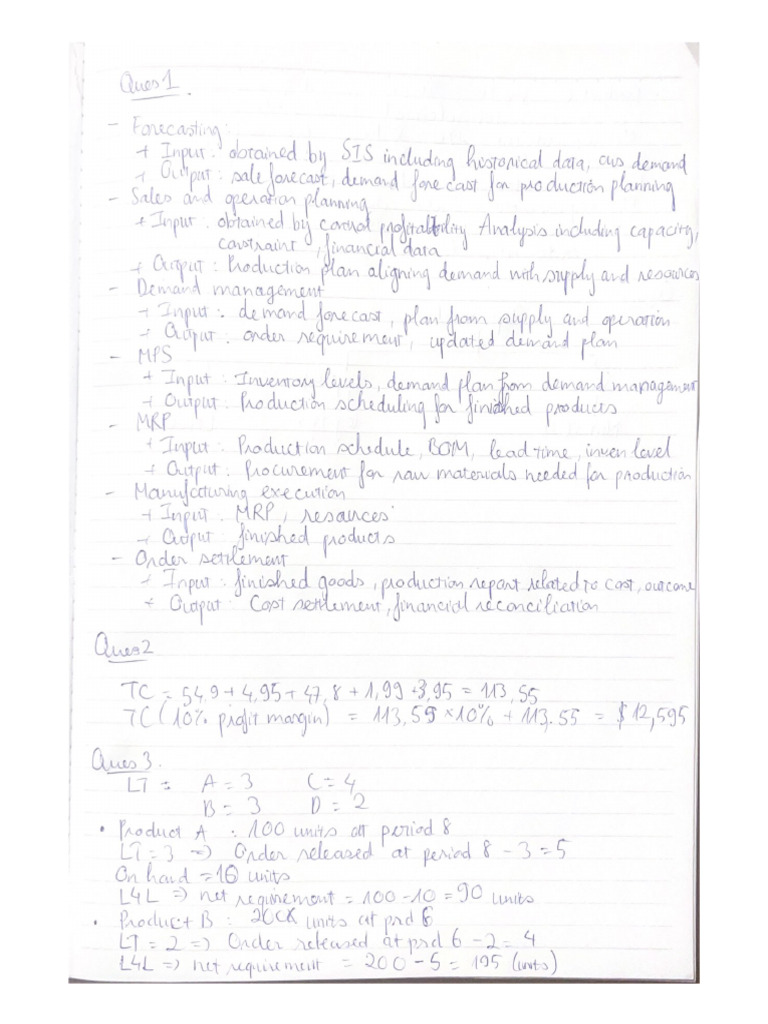 Ques 1.
- Forecasting:
+ Input: obtained by SIS including historical data, cus demand
+ Output: sale forecast, demand forecast for production planning
- Sales and operation planning
+ Input: obtained by control profitability Analysis including capacity,
constraint, financial data
+ Output: Production plan aligning demand with supply and resources
- Demand management
+ Input: demand forecast, plan from supply and operation
+ Output: order requirement, updated demand plan
- MPS
+ Input: Inventory levels, demand plan from demand management
+ Output: Production scheduling for finished produces
- MRP
+ Input: Production schedule, BOM, lead time, inven level
+ Output: Procurement for raw materials needed for production
- Manufacturing execution
+ Input: MRP, resources
+ Output: finished products
- Order settlement
+ Input: finished goods, production report related to cost, outcome
+ Output: Cost settlement, financial reconciliation
Ques 2
TC = 54,9 + 4,95 + 47,8 + 1,99 + 3,95 = 113,55
TC (10% profit margin) = 113,55 × 10% + 113.55 = $12,595
Ques 3.
LT = A = 3 C = 4
B = 3 D = 2
• Product A : 100 units at period 8
LT = 3 => Order released at period 8 - 3 = 5
On hand = 10 units
L4L => net requirement = 100 - 10 = 90 units
• Product B : units at prd 6
LT = 2 => Order released at prd 6 - 2 = 4
L4L => net requirement = 200 - 5 = 195 (units)